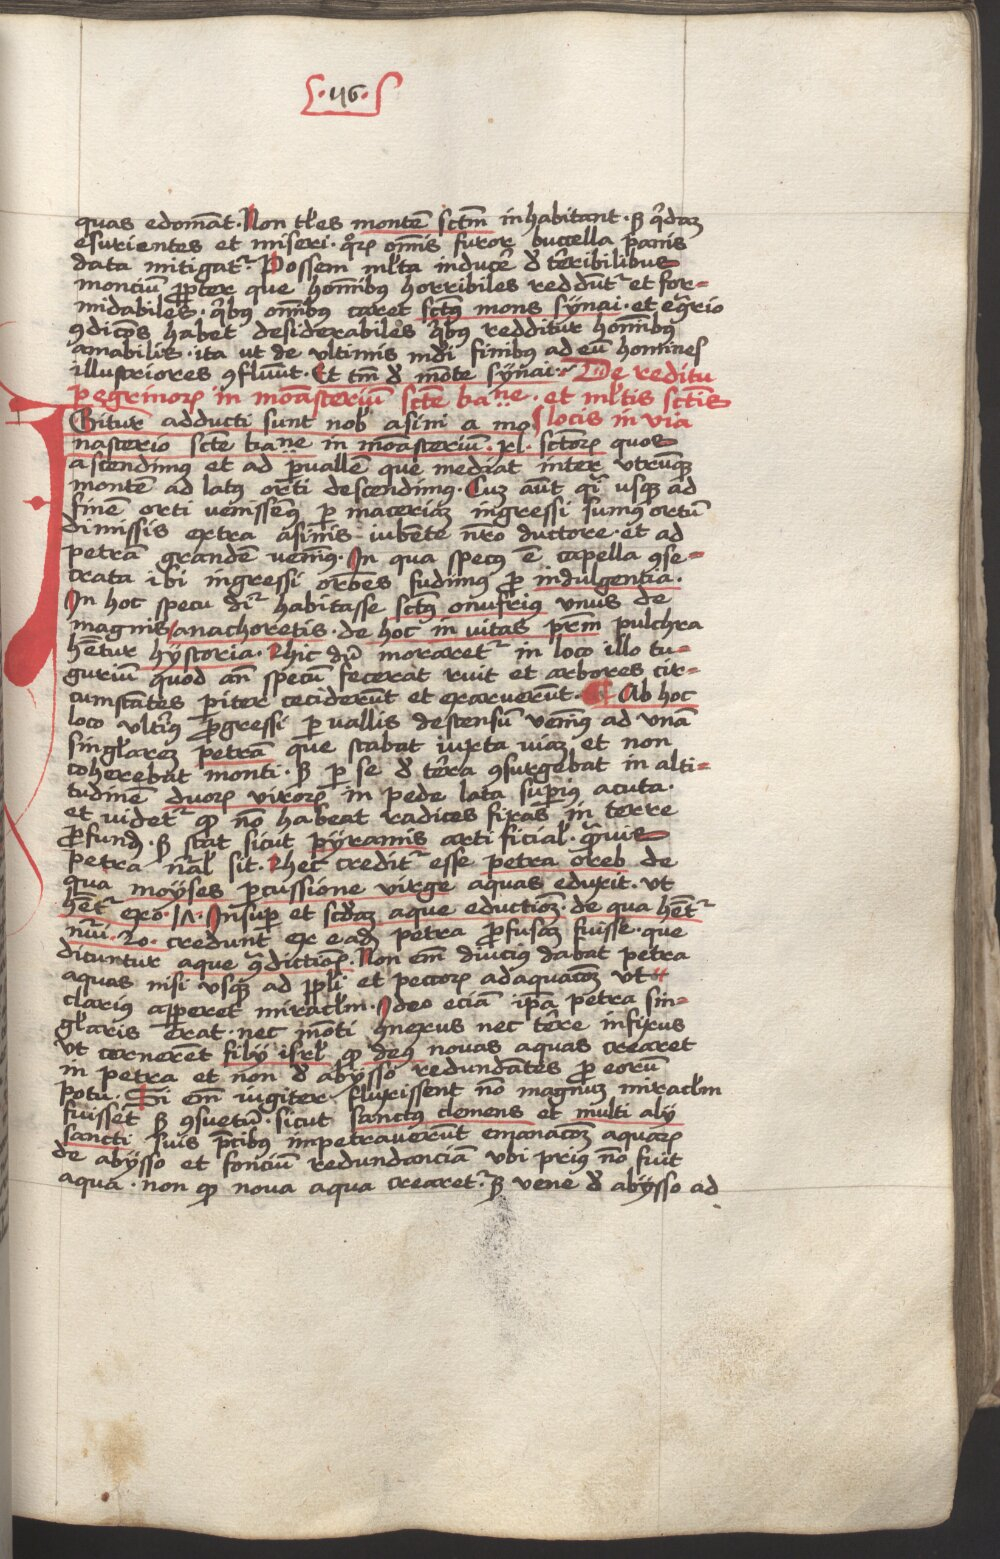 ·116·
quas edomāt· Non tl̄es montē sctm̄ inhabitant· sꝫ q̄dam
esurientes et miseri· qr̄oꝝ om̄is furor buccella panis
data mitigat᷑· Possem ml̄ta inducē d̄ t̄eribilibus
monciū ꝓpter que hom̄ibꝯ horribiles reddūt᷑ et for=
midabiles· q̄bꝯ om̄ibꝯ caret sctꝯ mons sÿnai· et eq̄rio
ꝯdicōes habet desiderabiles q̄bꝯ redditur hom̄ibꝯ
amabilis· ita ut de vltimis mūdi finibꝯ ad eū homines
illustriores ꝯfluūt· Et tm̄ d̄ mōte sÿnai· De reditu
pegrinorꝝ in monasteriū scte̅ ka᷑ne· et ml̄tis sctis
Igitur adducti sunt nob̄ asini a mo locis in via
nasterio scte̅ ka᷑ne in monasteriū· xl· sctōrꝝ quos
ascendimꝯ et ad ꝑuallē que mediat inter vtrumqꝫ
montē ad latꝯ orti descendimꝯ· Cum aūt qi usqꝫ ad
finē orti venissemꝯ ꝑ maceriam ingressi sumꝯ ortū
dimissis extra asinis iubēte nr̄o ductore· et ad
petrā grandē venimꝯ· In qua specꝯ ē capella ꝯse=
crata ibi ingressi orōnes fudimꝯ ꝓ indulgentia·
In hoc specu dr᷑ habitasse sctꝯ onufriꝯ vnus de
magnis anachoretis· de hoc in vitas prm̄ pulchra
hētur hÿstoria· Hic dū moraret᷑ in loco illo tu=
guriū quod añ specū fecerat ruit et arbores cir=
cumstātes pariter ceciderūt et exaruerūt· Ab hoc
loco vlteriꝯ ꝓgressi ꝑ vallis descensū venimꝯ ad vnā
singl̄arem petrā que stabat iuxta viam et non
coherebat monti· sꝫ ꝑ se d̄ terra ꝯsurgebat in alti=
tudinē duorꝝ virorꝝ in pede lata supiꝯ acuta·
et videt᷑ qꝫ nō habeat radices fixas in terre
ꝓfundo· sꝫ stat sicut pÿramis artificial̄· q̄muis
petra nāl̄ sit· Hec credit᷑ esse petra oreb de
qua moÿses ꝑcussione virge aquas eduxit· vt
hēt᷑ exo· 17· Insup et scd̄am aque eductiōem· de qua hēt᷑
nūi· 20· credunt ex eadē petra ꝓfusam fuisse· que
dicuntur aque ꝯ̄dictiōis· Non em̄ diucius dabat petra
aquas nisi vsqꝫ ad ppl̄i et pecorꝝ adaquacōem vt
clariꝯ appareret miracl̄m· Ideo eciā ipa petra sin=
gl̄aris erat· nec mōti ꝯnexus nec terre infixus
vt cernerent filij isrl̄ qꝫ deꝯ novas aquas crearet
in petra et non d̄ abÿsso redundātes ꝓ eorū
potu· Si em̄ iugiter fluxissent nō magnum miracl̄m
fuisset sꝫ ꝯsuetū· sicut sanctꝯ clemens et multi alij
sancti suis p̄cibꝯ impetraverūt emanacōem aquarꝝ
de abÿsso et fonciū redundanciā vbi priꝯ nō fuit
aqua· non qꝫ nova aqua crearet᷑ sꝫ vene d̄ abÿsso ad